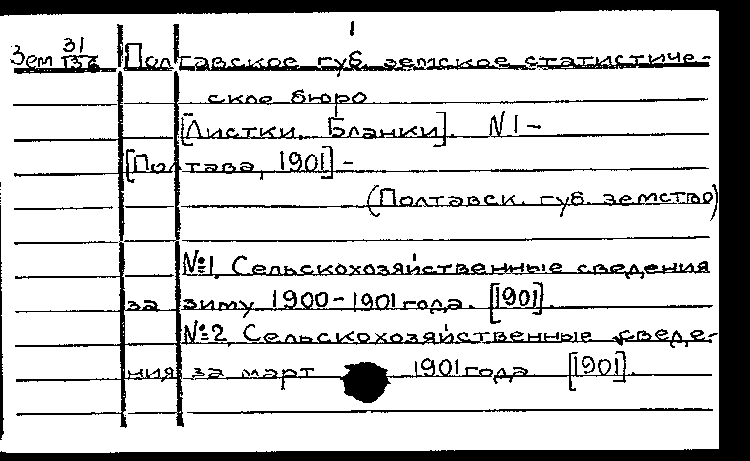 1
Зем 31/136 Полтавское губ. земское статистиче-
ское бюро
[Листки. Бланки]. N 1 –
[Полтава, 1901] –
(Полтавск. губ. земство)
№1. Сельскохозяйственные сведения
за зиму 1900–1901 года. [1901].
№2. Сельскохозяйственные сведе-
ния за март 1901 года [1901].